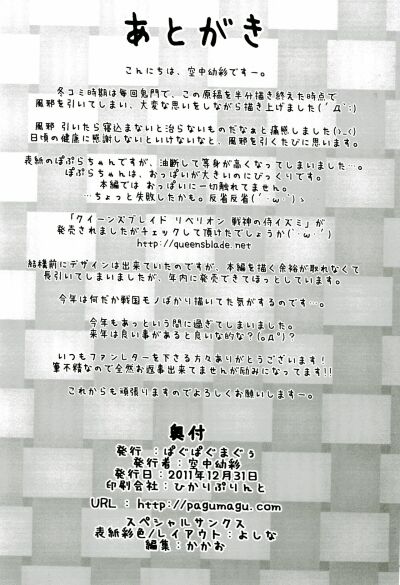 あとがき
こんにちは、空中幼彩ですー。
冬コミ時期は毎回鬼門で、この原稿を半分描き終えた時点で
風邪を引いてしまい、大変な思いをしながら描き上げました(´Д`;)
風邪 引いたら寝込まないと治らないものだなぁと痛感しました(>_<)
日頃の健康に感謝しないといけないなと、風邪を引くたびに思います。
表紙のぽぷらちゃんですが、油断して等身が高くなってしまいました…。
ぽぷらちゃんは、おっぱいが大きいのにびっくりです。
本編では おっぱいに一切触れてません。
…ちょっと失敗したかも。反省反省(´・ω・`)ゝ
「クイーンズブレイド リベリオン 戦神の侍イズミ」が
発売されましたがチェックして頂けたでしょうか(´・ω・`)
http://queensblade.net
結構前にデザインは出来ていたのですが、本編を描く余裕が取れなくて
長引いてしまいましたが、年内に発売できてほっとしています。
今年は何だか戦国モノばかり描いてた気がするのです…。
今年もあっという間に過ぎてしまいました。
来年は良い事があると良いな的な?(｡Д゚)?
いつもファンレターを下さる方々ありがとうございます!
筆不精なので全然お返事出来てませんが励みになってます!!
これからも頑張りますのでよろしくお願いしますー。
奥付
発行 : ぱぐぱぐまぐぅ
発行者 : 空中幼彩
発行日 : 2011年12月31日
印刷会社 : ひかりぷりんと
URL : http://pagumagu.com
スペシャルサンクス
表紙彩色/レイアウト : よしな
編集 : かかお